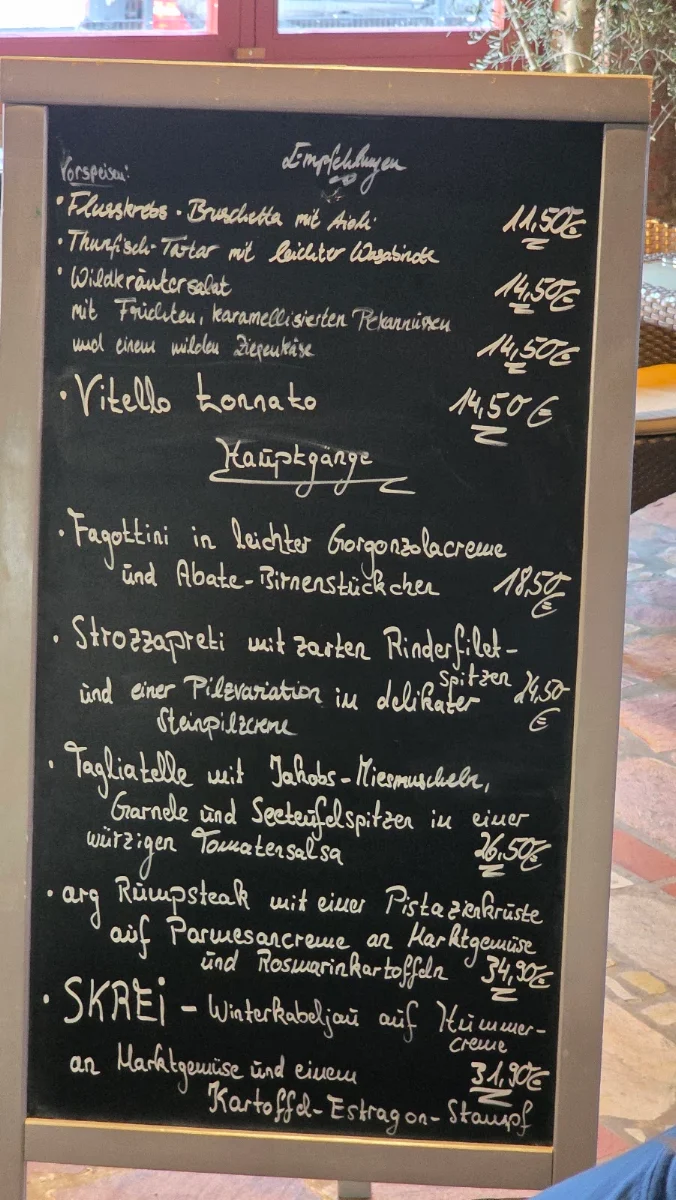 Empfehlungen
Vorspeisen:
• Flusskrebs - Bruschetta mit Aioli 11,50€
• Thunfisch-Tartar mit leichter Wasabinote
• Wildkräutersalat 14,50€
mit Früchten, karamellisierten Pekannüssen
und einem milden Ziegenkäse 14,50€
• Vitello tonnato 14,50€
Hauptgänge
• Fagottini in leichter Gorgonzolacreme
und Abate-Birnenstückchen 18,50
€
• Strozzapreti mit zarten Rinderfilet-
spitzen
und einer Pilzvariation in delikater 24,50
Steinpilzcreme €
• Tagliatelle mit Jakobs-Miesmuscheln,
Garnele und Seeteufelspitzen in einer
würzigen Tomatensalsa 26,50€
• arg Rumpsteak mit einer Pistazienkruste
auf Parmesancreme an Marktgemüse
und Rosmarinkartoffeln 34,90€
• SKREi - Winterkabeljau auf Hummer-
creme
an Marktgemüse und einem 31,90€
Kartoffel-Estragon-Stampf